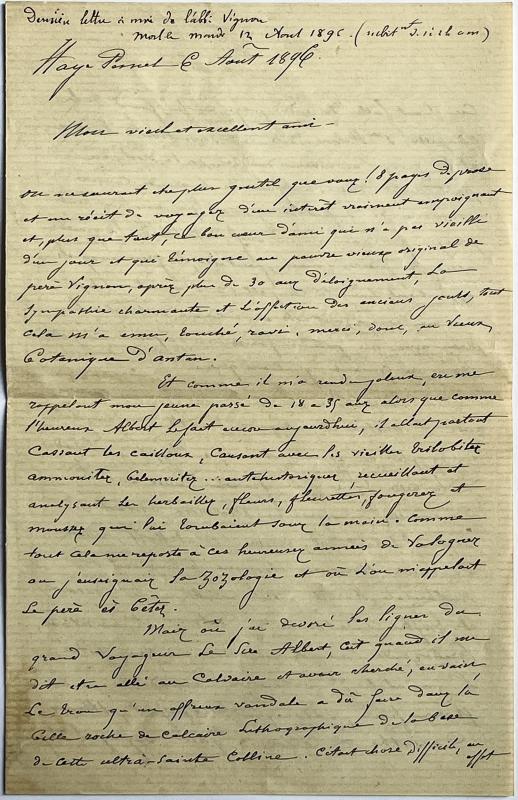 Dernière lettre à moi de l'abbé Vignon
mort le mardi 12 Aout 1896. (subit
Haye Pesnel 6 Août 1896
Mon vieil et excellent ami —
On ne saurait être plus gentil que vous! 8 pages de prose
et un récit de voyages d'un intérêt vraiment empoignant
et, plus que tout, ce bon cœur d'ami qui n'a pas vieilli
d'un jour et qui témoigne au pauvre vieux original de
père Vignon, après plus de 30 ans d'éloignement, la
sympathie charmante et l'affection des anciens jours, tout
cela m'a ému, touché, ravi. merci, donc, au vieux
Botanique d'antan.
Et comme il m'a rendu jaloux, en me
rappelant mon jeune passé de 18 a 35 ans alors que comme
l'heureux Albert le fait encore aujourdhui, il allait partout
cassant les cailloux, causant avec les vieilles trilobites
ammonites, belemnites ... antehistoriques, recueillant et
analysant les herbailles, fleurs, fleurettes, fougeres et
mousses qui lui tombaient sous la main. Comme
tout cela me reporte à ces heureuses années de Valognes
ou j'enseignais la zozologie et où l'on m'appelait
le père ès bêtes.
Mais où j'ai dévoré les lignes du
grand voyageur le Sire Albert, c'est quand il me
dit etre allé au Calvaire et avoir cherché, en vain
le trou qu'un affreux vandale a dû faire dans la
belle roche de calcaire lithographique de la base
de cette ultrà-Sainte Colline. C'était chose difficile, en
effet